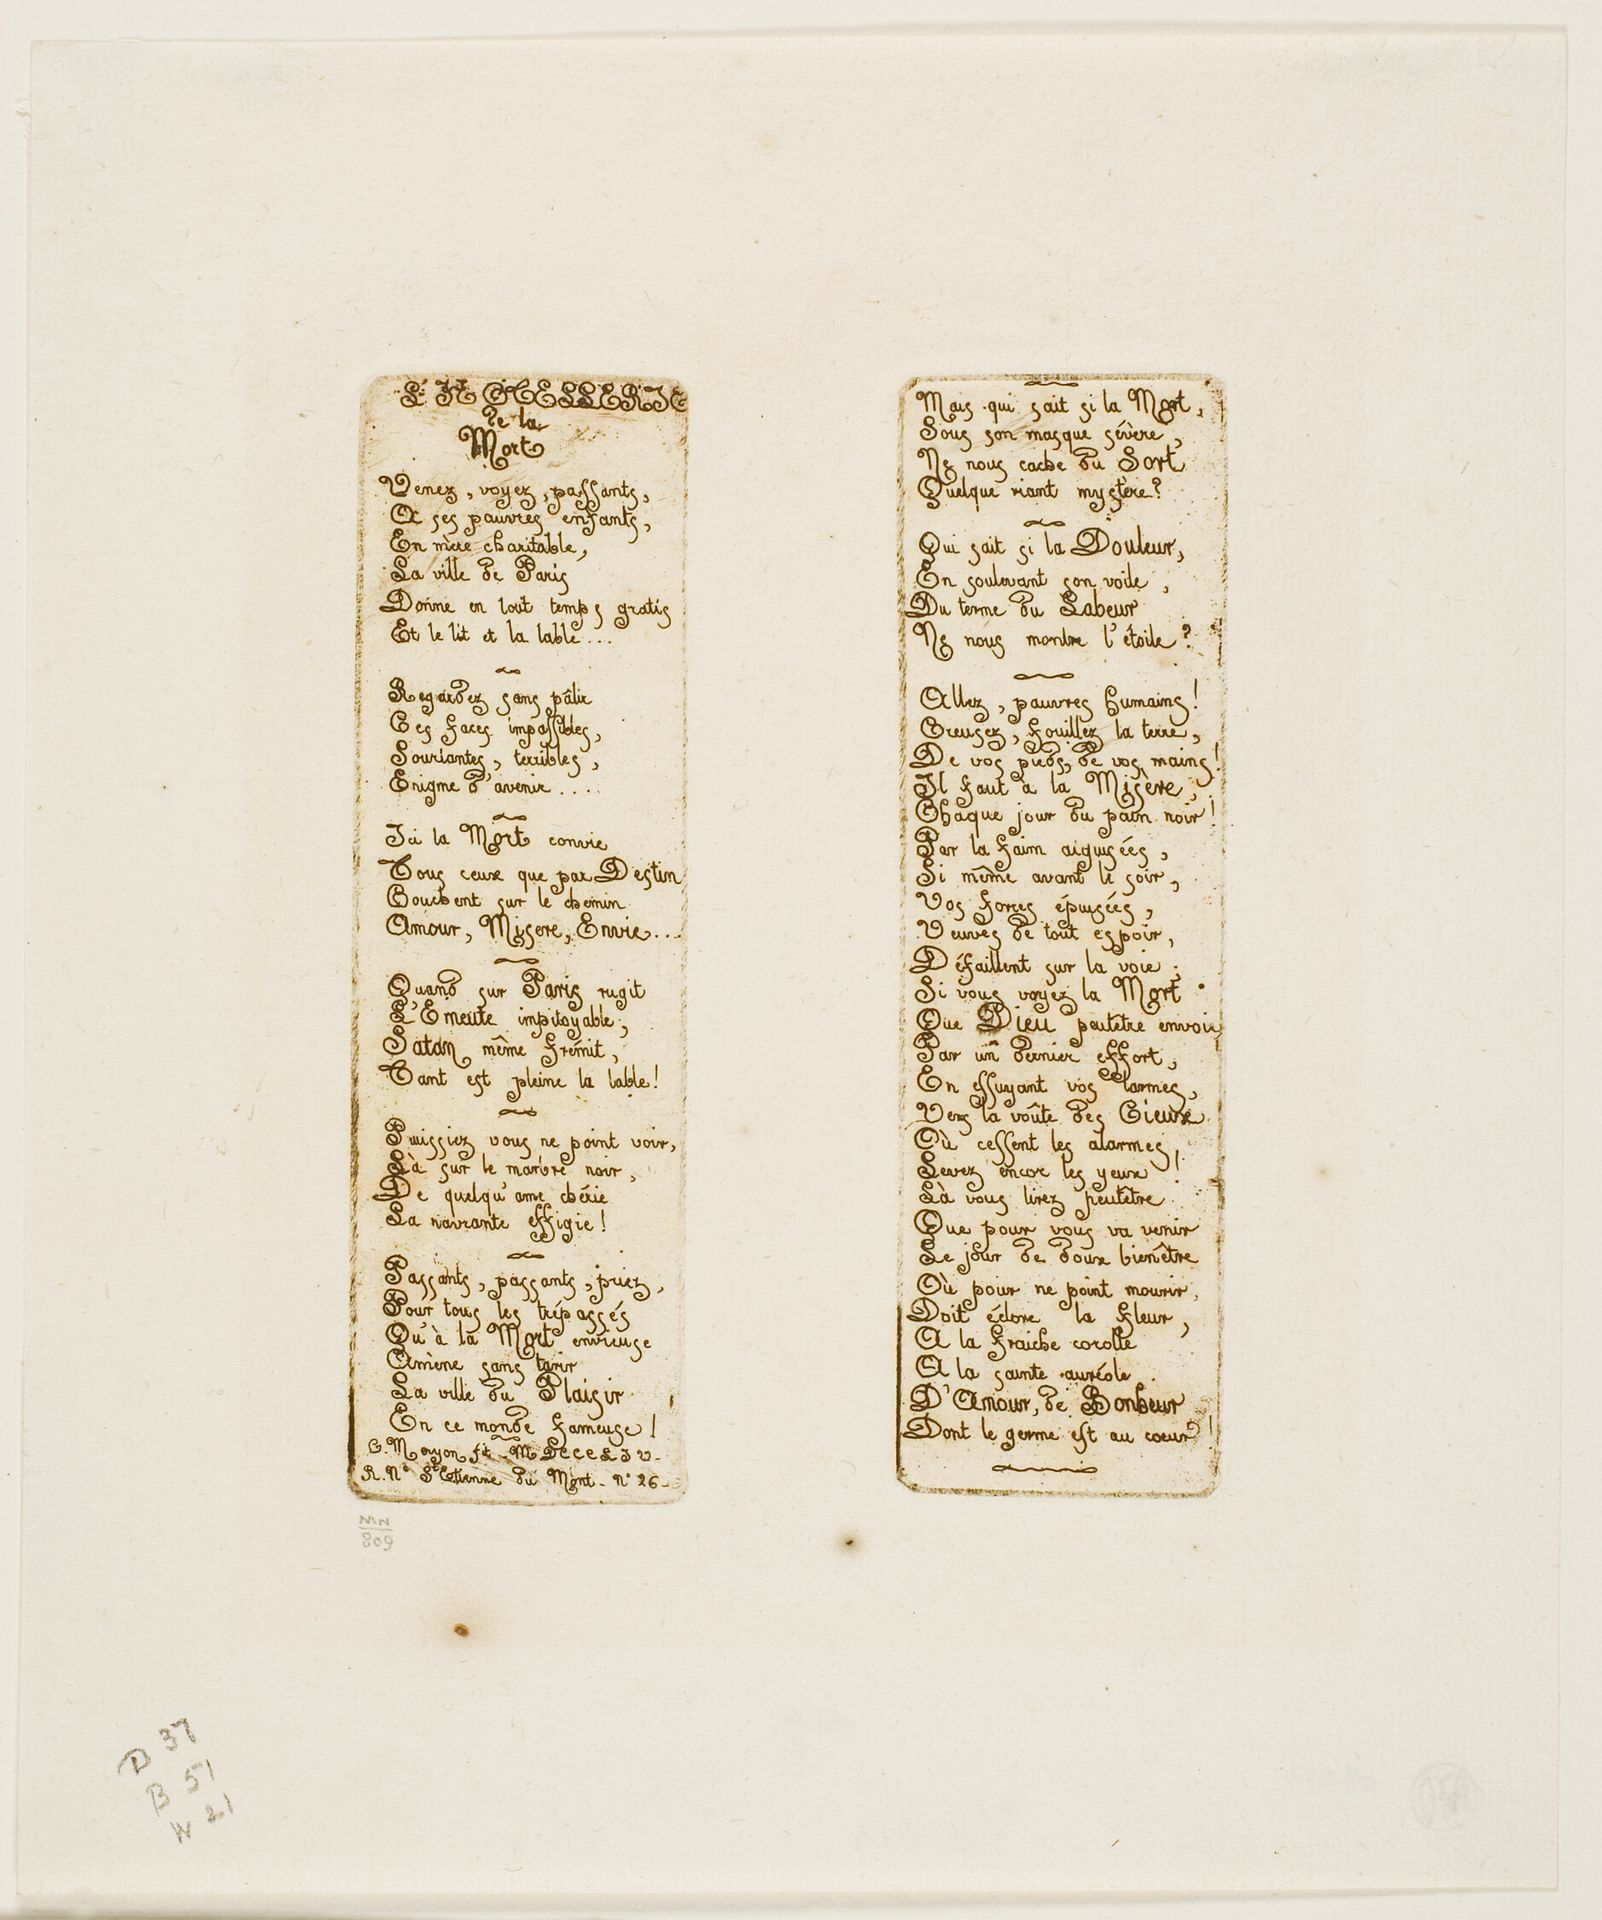 L'HOTELLERIE
De la
Mort
Venez, voyez, passants,
A ses pauvres enfants,
En mère charitable,
La ville de Paris
Donne en tout temps gratis
Et le lit et la table...
Regardez sans pâlir
Ces faces impassibles,
Souriantes, terribles,
Enigme d'avenir....
Ici la Mort convie
Tous ceux que par Destin
Couchent sur le chemin
Amour, Misere, Envie...
Quand sur Paris rugit
L'Emeute impitoyable,
Satan même frémit,
Tant est pleine la table!
Puissiez vous ne point voir,
Là sur le marbre noir,
De quelqu'ame chérie
La navrante effigie!
Passants, passants, priez,
Pour tous les trépassés
Qu'à la Mort envieuse
Amène sans tarir
La ville du Plaisir
En ce monde fameuse!
C. Meryon ft. MDCCCLIV-
R. Ne St Etienne du Mont - No 26-
Mais qui sait si la Mort,
Sous son masque sévère,
Ne nous cache du Sort
Quelque riant mystère?
Qui sait si la Douleur,
En soulevant son voile,
Du terme du Labeur
Ne nous montre l'étoile?
Allez, pauvres humains!
Creusez, fouillez la terre,
De vos pieds, de vos mains!
Il faut à la Misère,
Chaque jour du pain noir!
Par la faim aiguisées,
Si même avant le soir,
Vos forces épuisées,
Veuves de tout espoir,
Défaillent sur la voie;
Si vous voyez la Mort
Que Dieu peutêtre envoie
Par un dernier effort,
En essuyant vos larmes,
Vers la voûte des Cieux
Où cessent les alarmes,
Levez encor les yeux!
Là vous lirez peutêtre
Que pour vous va venir
Le jour de doux bienêtre
Où pour ne point mourir,
Doit éclore la fleur,
A la fraiche corolle
A la sainte auréole
D'Amour, de Bonheur
Dont le germe est au coeur!
MN
809
D 37
B 51
W 21